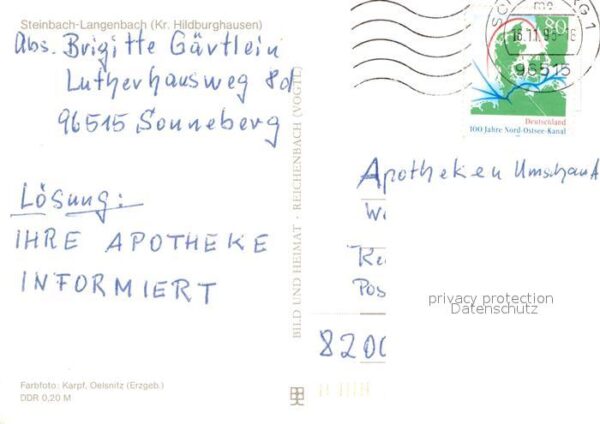 Steinbach-Langenbach (Kr. Hildburghausen)
Abs. Brigitte Gärtlein
Lutherhausweg 8d
96515 Sonneberg
Lösung:
IHRE APOTHEKE
INFORMIERT
Farbfoto: Karpf, Oelsnitz (Erzgeb.)
DDR 0,20 M
BILD UND HEIMAT · REICHENBACH (VOGTL)
80
96515
Deutschland
100 Jahre Nord-Ostsee-Kanal
Apotheken Umschau
Pos
privacy protection
Datenschutz
820